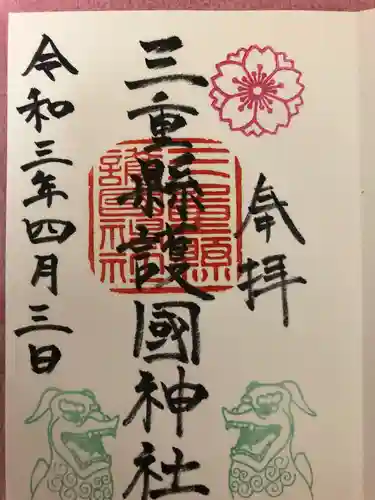 奉拝
三重縣護國神社
三重縣護國神社
令和三年四月三日